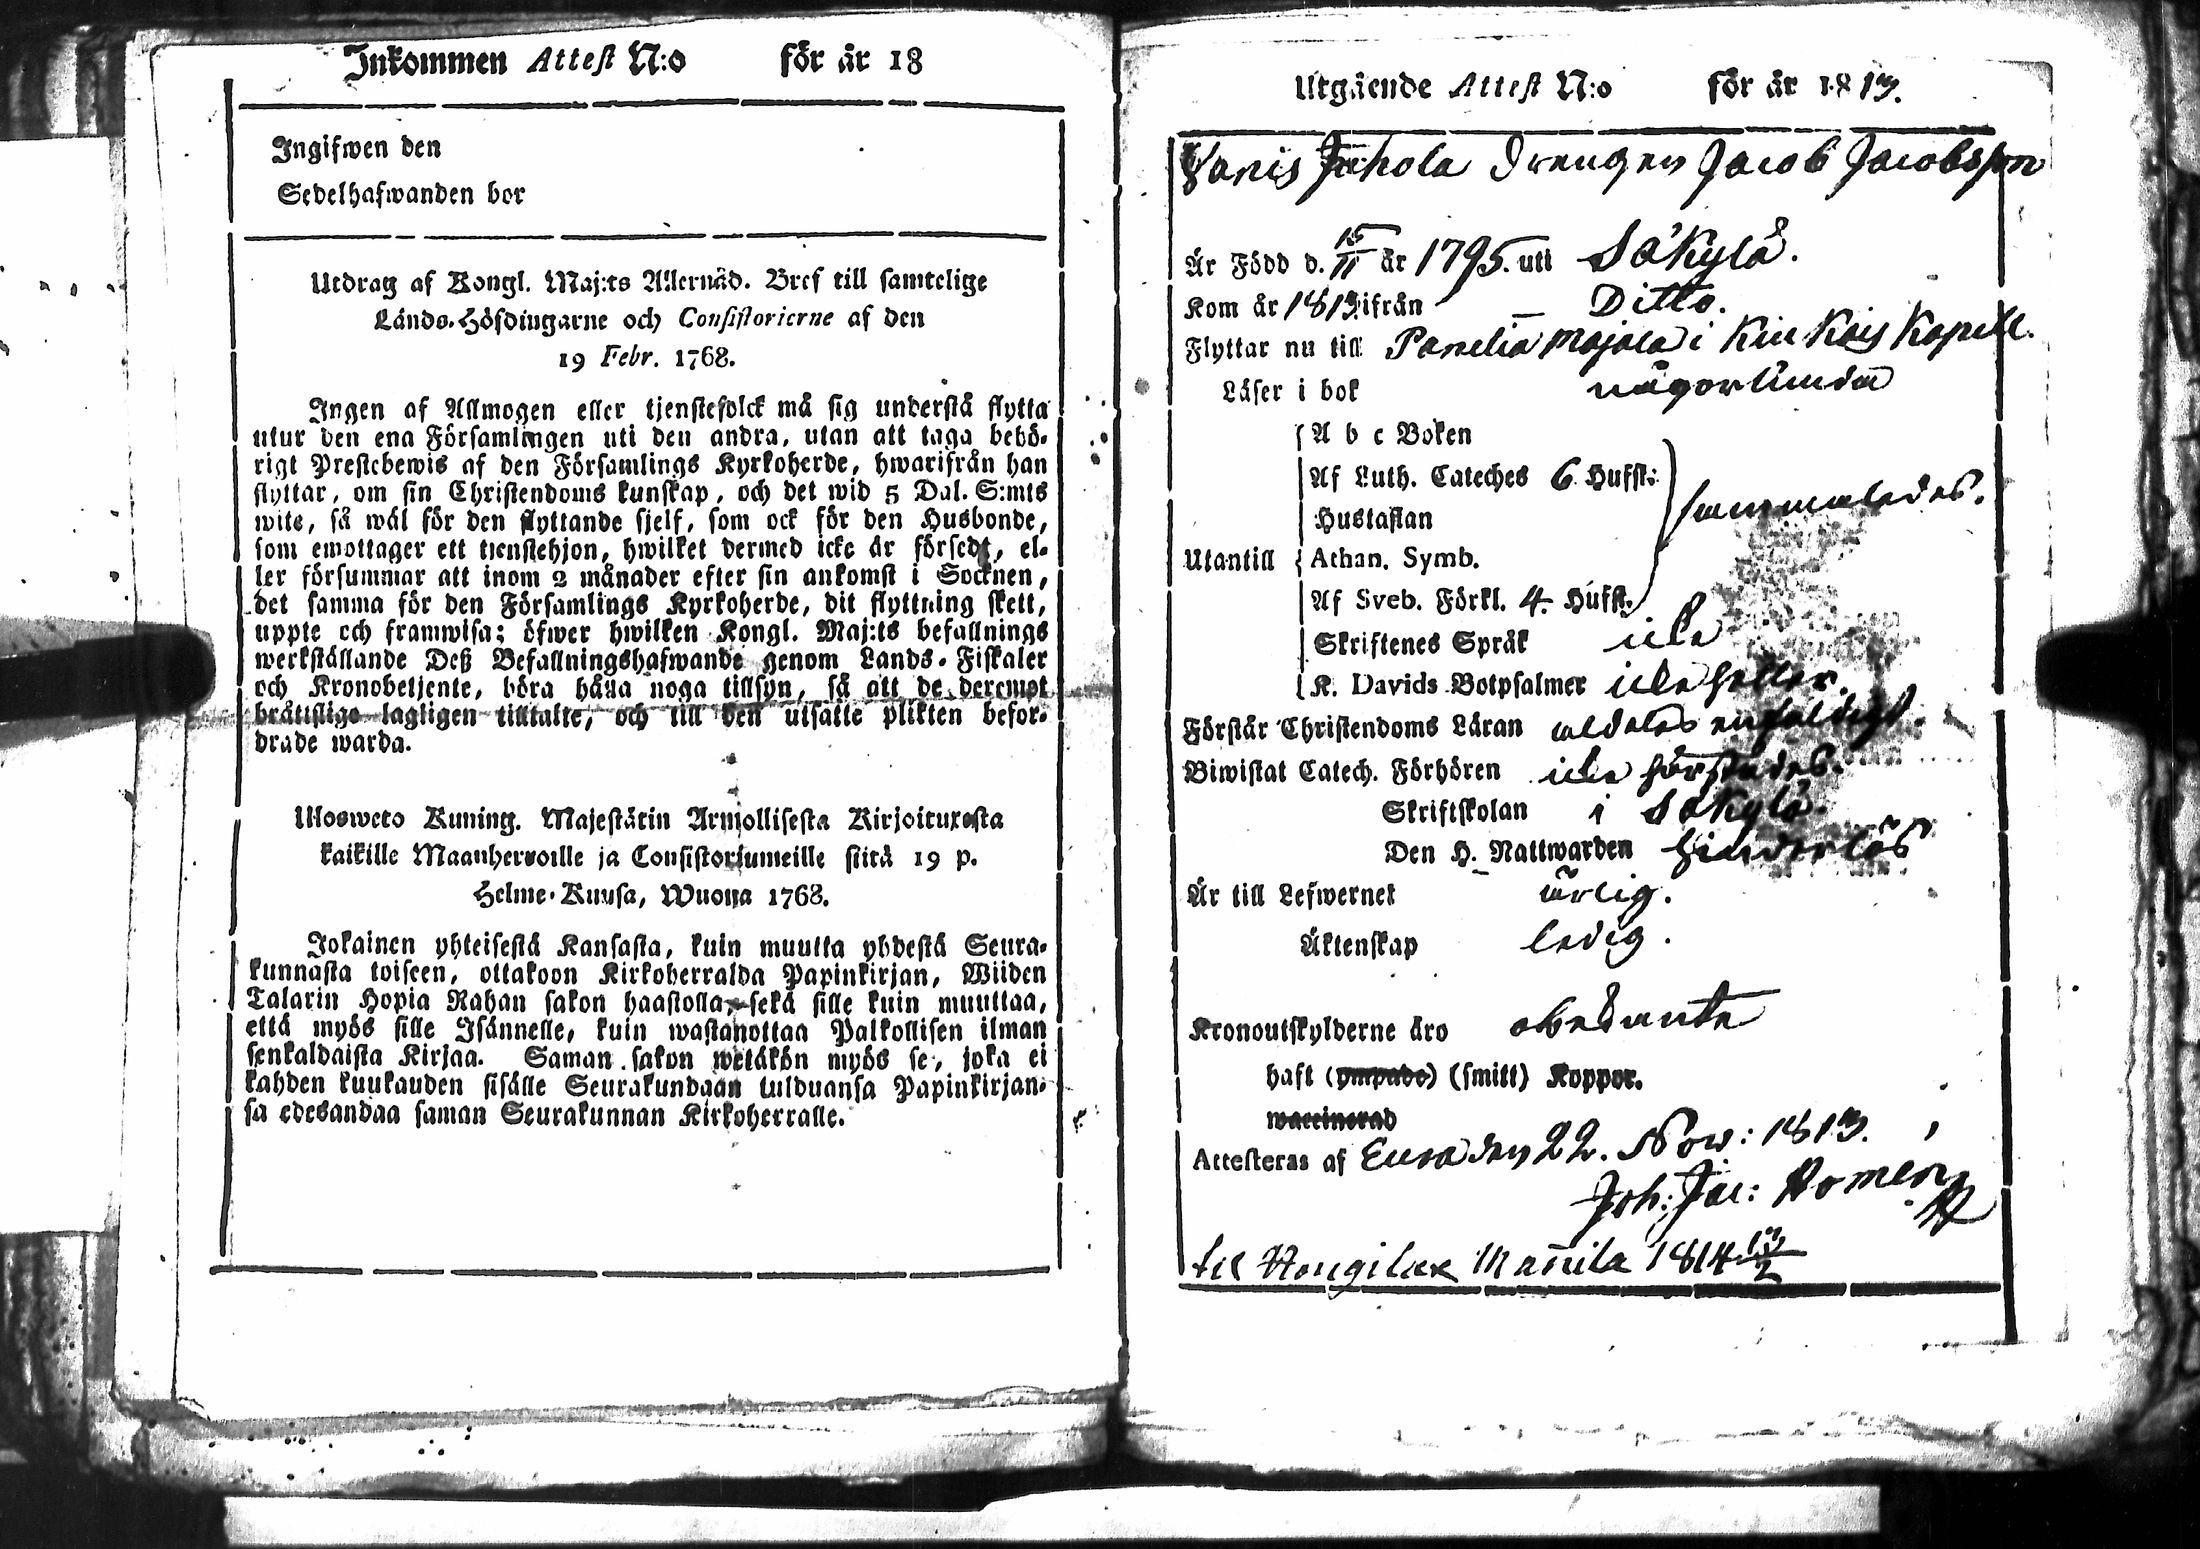 Inkommen Attest N:o för år 18
Ingifwen den
Sedelhafwanden bor
Utdrag af Kongl. Maj:ts Allernåd. Bref till samtelige
Lands-Höfdingarne och Consistorierne af den
19 Febr. 1768.
Ingen af Allmogen eller tjenstefolck må sig understå flytta
utur den ena Församlingen uti den andra, utan att taga behö-
rigt Prestebewis af den Församlings Kyrkoherde, hwarifrån han
flyttar, om sin Christendoms kunskap, och det wid 5 Dal. S:mts
wite, så wäl för den flyttande sjelf, som ock för den Husbonde,
som emottager ett tjenstehjon, hwilket dermed icke är försedt, el-
ler försummar att inom 2 månader efter sin ankomst i Socknen,
det samma för den Församlings Kyrkoherde, dit flyttning skett,
uppte och framwisa; öfwer hwilken Kongl. Maj:ts befallnings
werkställande Deß Befallningshafwande genom Lands-Fiskaler
och Kronobetjente, böra hålla noga tillsyn, så att de deremot
bråttslige lagligen tilltalte, och till den utsatte plikten befor-
drade warda.
Ulosweto Kuning. Majestätin Armollisesta Kirjoituxesta
kaikille Maanherroille ja Consistoriumeille siitä 19 p.
Helme-Kuusa, Wuonna 1768.
Jokainen yhteisestä Kansasta, kuin muutta yhdestä Seura-
kunnasta toiseen, ottakoon Kirkoherralda Papinkirjan, Wiiden
Talarin Hopia Rahan sakon haastolla, sekä sille kuin muuttaa,
että myös sille Isännelle, kuin wastanottaa Palkollisen ilman
senkaldaista Kirjaa. Saman sakon wetäkön myös se, joka ei
kahden kuukauden sisälle Seurakundaan tulduansa Papinkirjan-
sa edesandaa saman Seurakunnan Kirkoherralle.
Utgående Attest N:o för år 1813.
Jahola Drengen Jacob Jacobsson
Är Född d. 15/11 år 1795. uti Säkylä.
Kom år 1813 ifrån – Ditto.
Flyttar nu till Panelia Majala i Kiukais Kapell.
Läser i bok någorlunda
A b c Boken
Af Luth. Cateches 6 Hufst:
Hustaflan sammaledes.
Utantill Athan. Symb.
Af Sveb. Förkl. 4. Hufst.
Skriftenes Språk icke
K. Davids Botpsalmer icke heller.
Förstår Christendoms Läran aldeles enfaldigt.
Biwistat Catech. Förhören icke härstädes.
Skriftskolan i Säkylä.
Den H. Nattwarden hinderlös
Är till Lefwernet ärlig.
Äktenskap ledig.
Kronoutskylderne äro obekante
haft (ympade) (smitt) Koppor.
waccinerad
Attesteras af Eura den 22. Now: 1813.
Joh: Jac: Homen
til Hongilax Mannila 1814 13/2